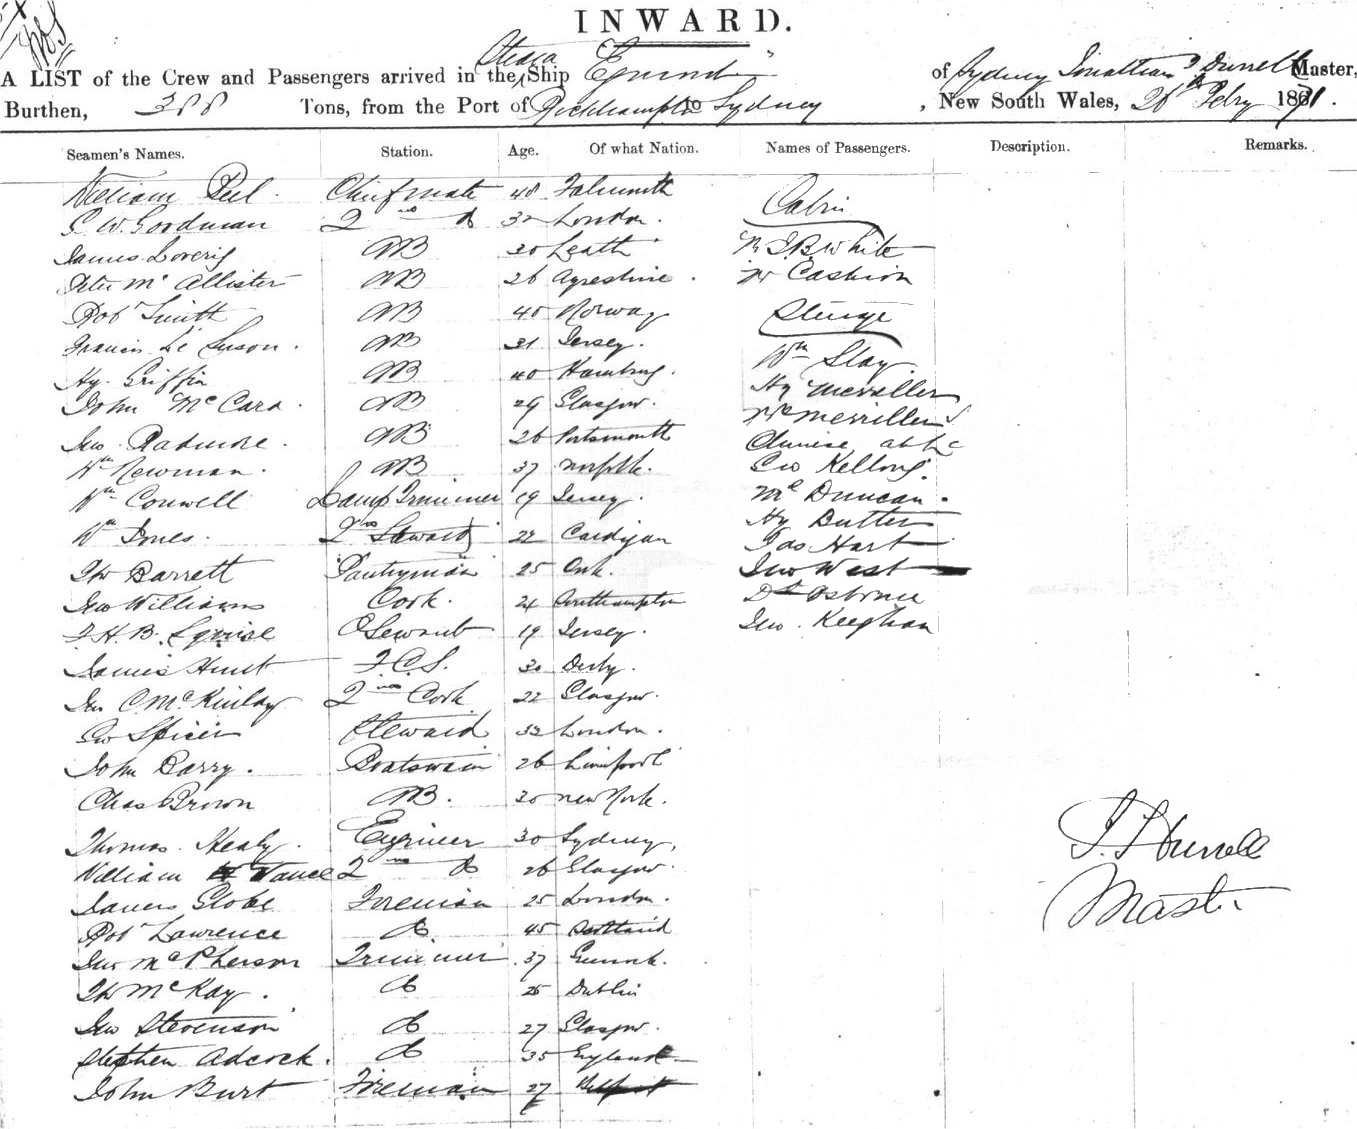 INWARD.
A LIST of the Crew and Passengers arrived in the Steam Ship of Sydney Jonathan Master,
Burthen, 388 Tons, from the Port of Rockhampton to Sydney, New South Wales, 26th Febry 1871.
Seamen's Names. Station. Age. Of what Nation. Names of Passengers. Description. Remarks.
William Peel Chief mate 48 Falmouth Cabin
C W. Goodman 2nd do 32 London.
James AB 30 Leath Mr T B White
Peter Mc Allister AB 26 Ayreshire. Mr Cashion
Robt Smith AB 40 Norway Steerage
Francis Le AB 31 Jersey.
Hy. Griffin AB 40 Hamburg. Wm Slay
John McCara AB 29 Glasgow. Hy
Jno. Radmore. AB 26 Portsmouth
Wm Newman. AB 37 Norfolk. Chinese
Wm Conwell Lamp Trimmer 19 Jersey. Geo Kellong
Wm Jones. 2nd Steward 22 Cardigan Mc Duncan.
Tho Barrett Pantryman 25 Cork. Hy Butter
Geo Williams Cook. 24 Southampton Jas Hart
F. H. B. Squise 19 Jersey. Jno West
James Hunt F.C.S. 30 Derby. Osborne
Jno C. McKinlay 2nd Cook 22 Glasgow. Jno. Keeghan
Geo Spicer Steward 32 London.
John Barry. Boatswain 26 Liverpool
Chas Brown AB. 30 New York.
Thomas. Healy. Engineer 30 Sydney,
William Vance 2nd do 26 Glasgow.
James Globe Fireman 25 London.
Robt Lawrence do 45 Scotland
Jno McPherson Trimmer 37
Tho McKay. do 25 Dublin
Jno Stevenson do 27 Glasgow.
Stephen Adcock. do 35 England
John Burt Fireman 27 Belfast
Master